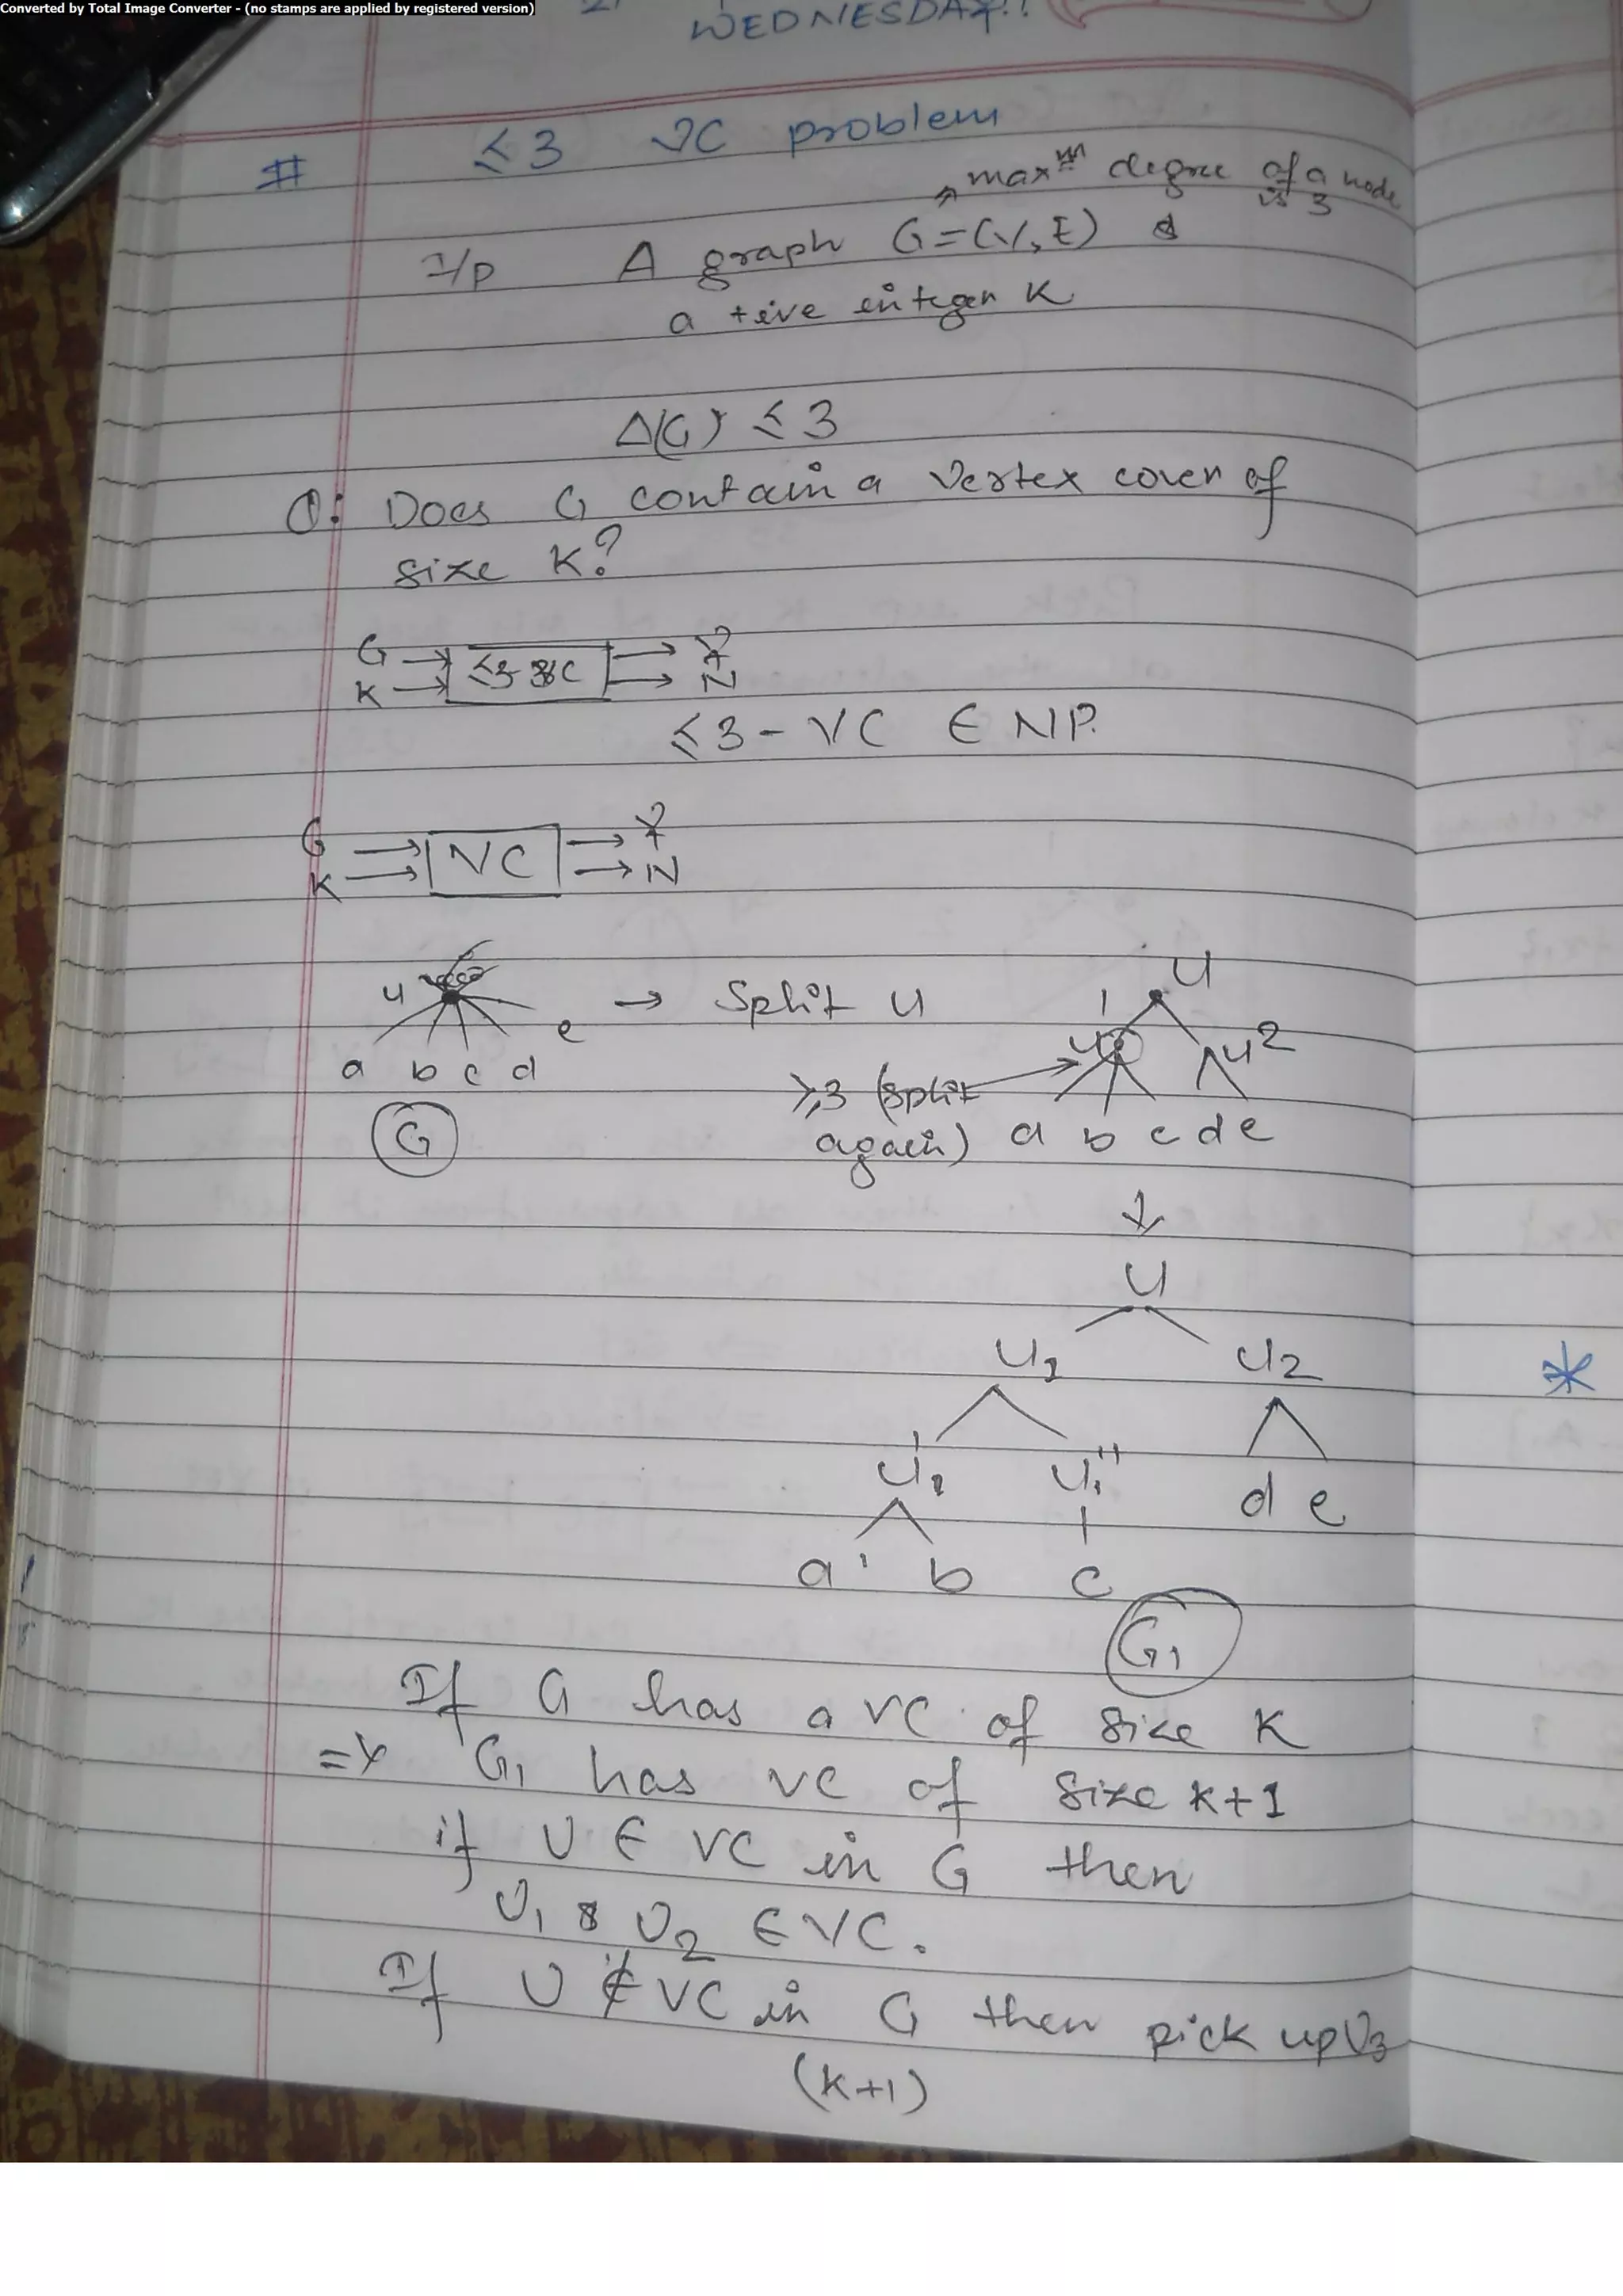 Converted by Total Image Converter - (no stamps are applied by registered version)
WEDNESDAY!!
# ≤3 VC problem
→ max^m degree of a node is 3
I/p A graph G=(V,E) &
a +ive integer K
Δ(G) ≤ 3
Q: Does G contain a vertex cover of
size K?
G → ≤3 VC → Y
K → → N
≤3-VC ∈ NP.
G → VC → Y
K → → N
u e → Split u u
a b c d u1 u2
≥3 (split
again) a b c d e
G
↓
u
u1 u2
u1' u1'' d e
a b c
G1
If G has a VC of size K
=> G1 has VC of size K+1
if U ∈ VC in G then
U1 & U2 ∈ VC.
If U ∉ VC in G then pick up U3
(K+1)